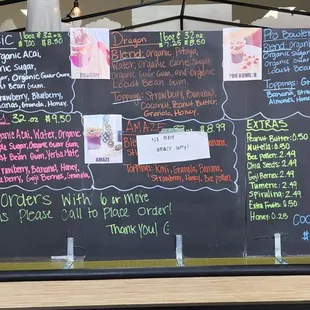 SIC 16oz & 32oz
$7.00 $8.50
Organic Acai,
Organic Sugar,
Organic Guar Gum,
Bean Gum
Strawberry, Blueberry,
Granola, Honey
Dragon 16oz & 32oz
$7.25 $8.50
Blend: Organic Pitaya,
Water, Organic Cane Sugar,
Organic Guar Gum, and
Locust Bean Gum
Toppings: Strawberry, Banana,
Coconut, Peanut Butter,
Granola, Honey
16oz & 32oz
Pro Bowl
Blend: Organic
Organic
Organic
Locust Bean
Toppings: Str
Almonds, Hone
32oz 9.50
Acai, Water, Organic
Sugar, Organic Guar
Bean Gum, Yerba Mate
Strawberry, Banana, Honey
Blueberry, Goji Berries, Granola
AMAZE
AMAZ $8.99
No more
amaze bowl!
Toppings: Kiwi, Granola, Banana,
Strawberry, Honey, Bee Pollen
EXTRAS
Peanut Butter: 0.50
Nutella: 0.50
Bee Pollen: 2.49
Granola: 0.50
Goji Berries: 0.50
Turmeric: 2.49
Spirulina: 2.49
Extra Fruits: 0.50
Honey: 0.25
Orders With 6 or more
Please Call to Place Order!
Thank You! (:
COC